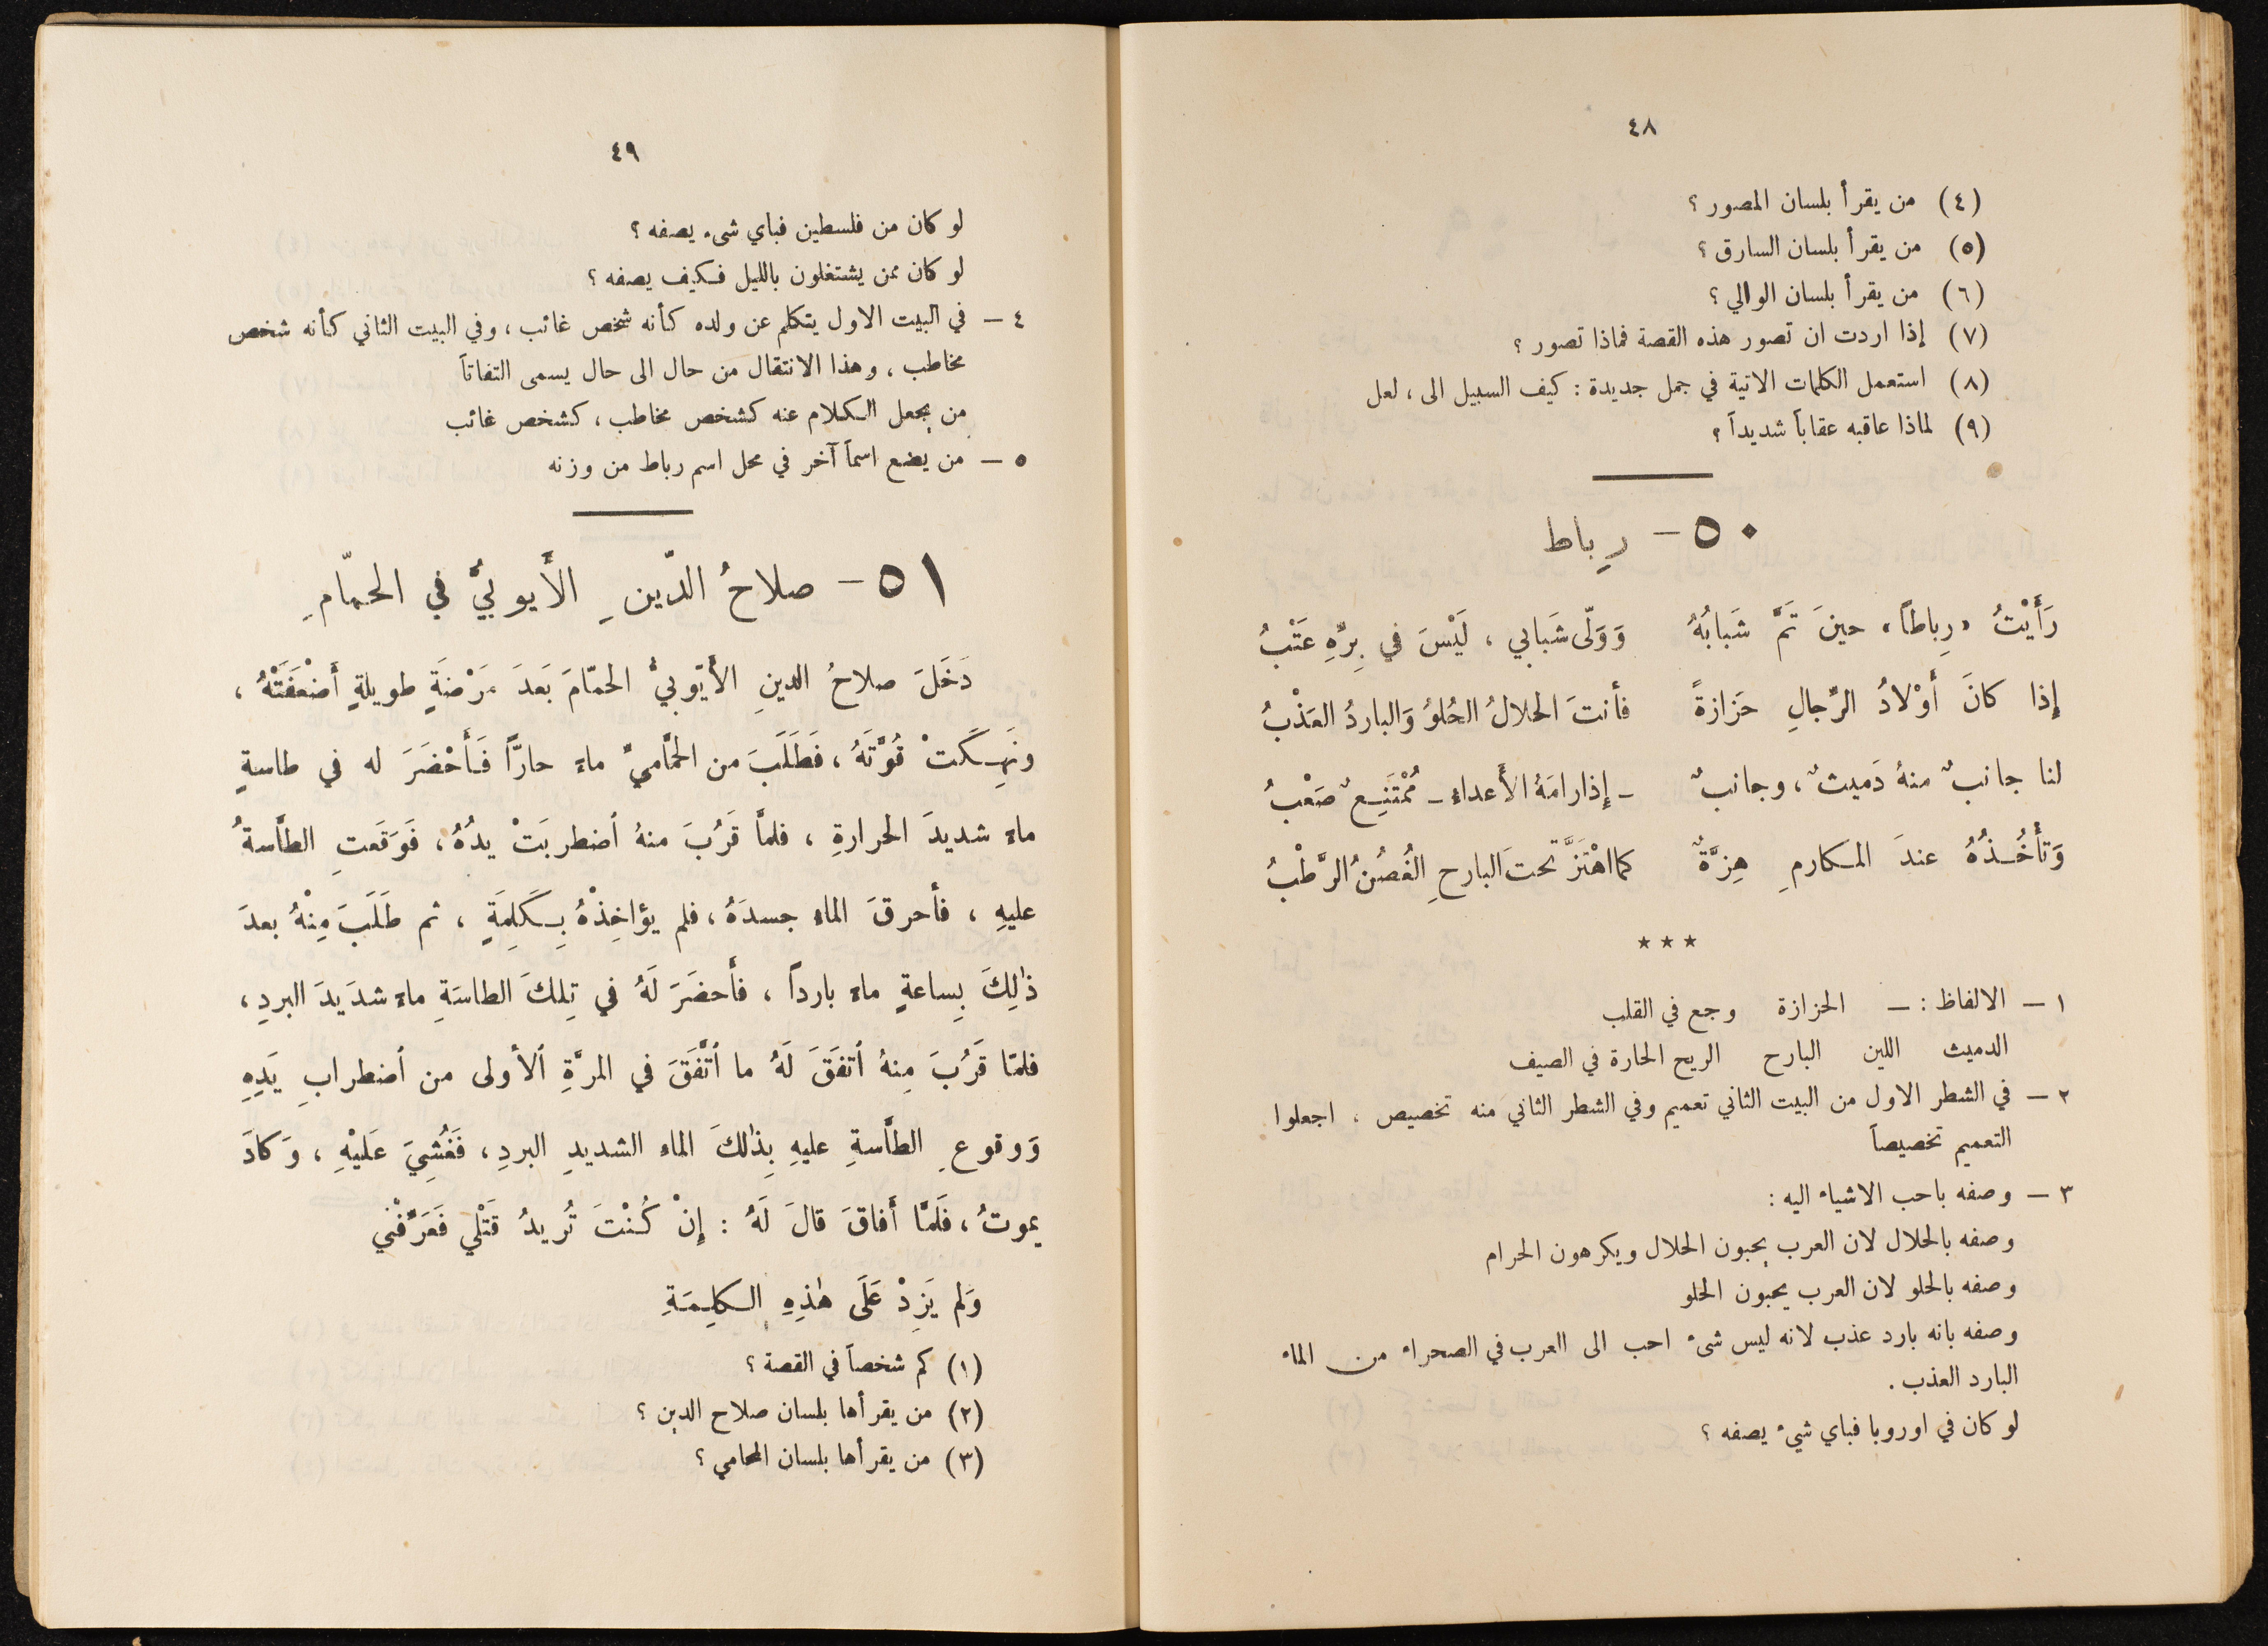 ٤٨
(٤) من يقرأ بلسان المصور ؟
(٥) من يقرأ بلسان السارق ؟
(٦) من يقرأ بلسان الوالي ؟
(٧) إذا اردت ان تصور هذه القصة فماذا تصور ؟
(٨) استعمل الكلمات الاتية في جمل جديدة : كيف السبيل الى ، لعل
(٩) لماذا عاقبه عقاباً شديداً ؟
٥٠ – رِباط
رَأَيْتُ «رِباطاً» حينَ تَمَّ شَبابُهُ وَوَلّى شَبابي ، لَيْسَ في بِرِّهِ عَتْبُ
إِذا كانَ أَوْلادُ الرِّجالِ حَزازةً فأنتَ الحلالُ الحُلوُ وَالباردُ العَذْبُ
لنا جانبٌ منهُ دَميثٌ ، وجانبٌ – إِذا رامَهُ الأَعداءِ – مُمْتَنِعٌ صَعْبُ
وَتَأْخُذُهُ عندَ المكارمِ هِزَّةٌ كما اهْتَزَّ تحتَ البارحِ الغُصُنُ الرَّطْبُ
***
١ – الالفاظ : – الحزازة وجع في القلب
الدميث اللين البارح الريح الحارة في الصيف
٢ – في الشطر الاول من البيت الثاني تعميم وفي الشطر الثاني منه تخصيص . اجعلوا
التعميم تخصيصاً
٣ – وصفه باحب الاشياء اليه :
وصفه بالحلال لان العرب يحبون الحلال ويكرهون الحرام
وصفه بالحلو لان العرب يحبون الحلو
وصفه بانه بارد عذب لانه ليس شىء احب الى العرب في الصحراء من الماء
البارد العذب .
لو كان في اوروبا فباي شيء يصفه ؟
٤٩
لو كان من فلسطين فباي شىء يصفه ؟
لو كان ممن يشتغلون بالليل فكيف يصفه ؟
٤ – في البيت الاول يتكلم عن ولده كأنه شخص غائب ، وفي البيت الثاني كأنه شخص
مخاطب ، وهذا الانتقال من حال الى حال يسمى التفاتاً
من يجعل الكلام عنه كشخص مخاطب ، كشخص غائب
٥ – من يضع اسماً آخر في محل اسم رباط من وزنه
٥١ – صلاحُ الدّينِ الأَيوبيُّ في الحمّامِ
دَخَلَ صلاحُ الدينِ الأَيّوبيُّ الحمّامَ بَعدَ مَرْضَةٍ طويلةٍ أَضْعَفَتْهُ ،
ونَهِكَتْ قُوَّتَهُ ، فَطَلَبَ من الحمَّاميِّ ماءً حارًّا فَأَحْضَرَ له في طاسةٍ
ماءً شديدَ الحرارةِ ، فلمَّا قَرُبَ منهُ اضطربَتْ يدُهُ ، فَوَقَعتِ الطَّاسةُ
عليهِ ، فأحرقَ الماء جسدَهُ ، فلم يؤاخِذْهُ بِكَلِمَةٍ ، ثم طَلَبَ مِنْهُ بعدَ
ذٰلِكَ بِساعةٍ ماءً بارداً ، فأَحضَرَ لَهُ في تِلكَ الطاسَةِ ماءً شدَيدَ البردِ ،
فلمّا قَرُبَ مِنهُ اتفَقَ لَهُ ما اتَّفَقَ في المرَّةِ الأولى من اضطرابِ يَدِهِ
وَوقوعِ الطَّاسةِ عليهِ بِذٰلكَ الماء الشديدِ البردِ ، فَغُشِيَ عَلَيْهِ ، وَكادَ
يموتُ ، فَلَمَّا أَفاقَ قالَ لَهُ : إِنْ كُنْتَ تُريدُ قَتْلي فَعَرِّفْني
وَلم يَزِدْ عَلَى هٰذِهِ الكلِمَةِ
(١) كم شخصاً في القصة ؟
(٢) من يقرأها بلسان صلاح الدين ؟
(٣) من يقرأها بلسان المحامي ؟